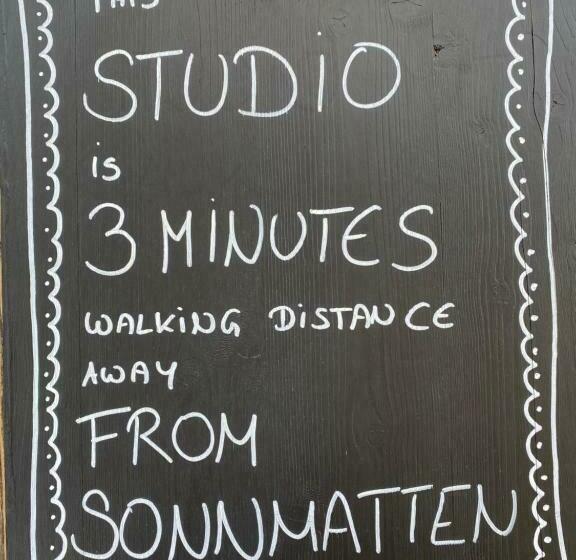 THIS
STUDiO
is
3 MiNUTES
WALKiNG DiSTANCE
AWAY
FROM
SONNMATTEN